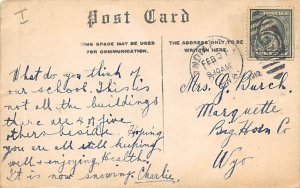 I
Post Card
THIS SPACE MAY BE USED
FOR COMMUNICATION.
THE ADDRESS ONLY TO BE
WRITTEN HERE.
FEB
What do you think of
our school. This is
not all the buildings
there are 4 or five
others beside. Hoping
you are all still keeping
well & enjoying Health
It is now snowing. Charlie.
Mrs. G. Burch.
Marquette
Big Horn Co
Wyo